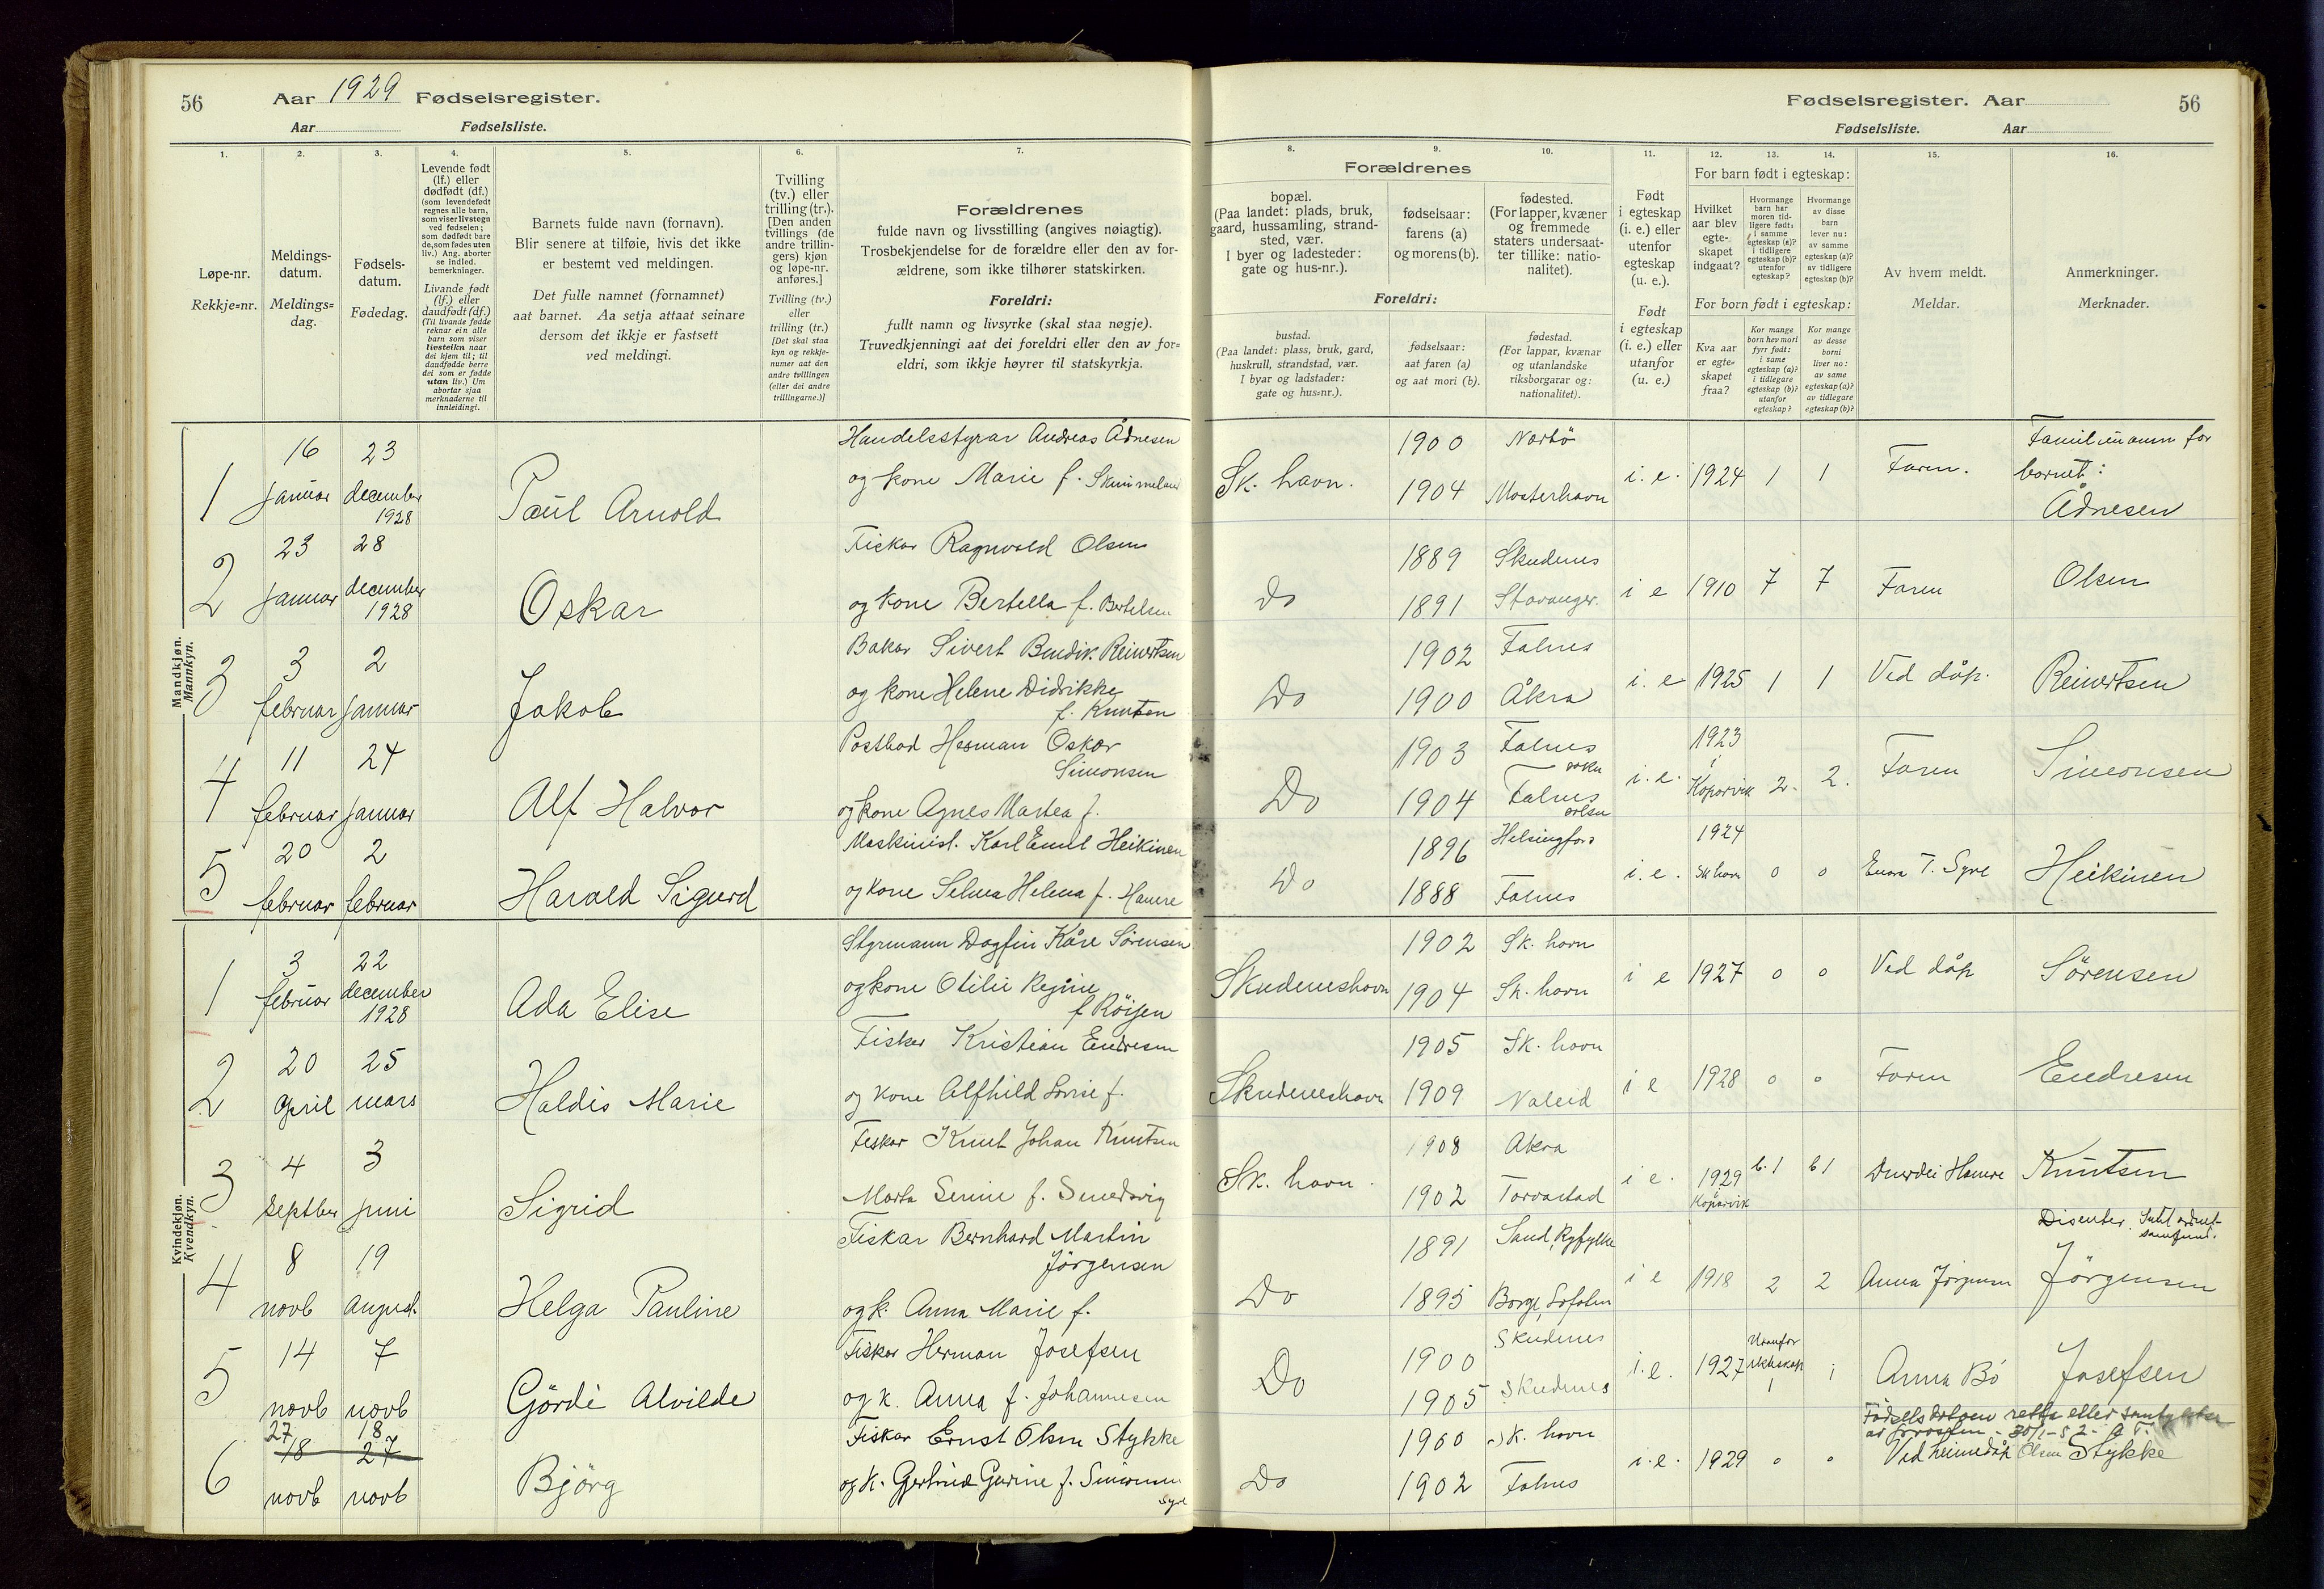 56 Aar 1929 Fødselsregister.
Aar Fødselsliste.
Fødselsregister. Aar 56
Fødselsliste. Aar
1. 2. 3. 4. 5. 6. 7.
Løpe-nr.
Rekkje=nr.
Meldings-
datum.
Meldings=
dag.
Fødsels-
datum.
Fødedag.
Levende født
(lf.) eller
dødfødt (df.)
(som levendefødt
regnes alle barn,
som viser livstegn
ved fødselen;
som dødfødt bare
de, som fødes uten
liv.) Ang. aborter
se indled.
bemerkninger.
Livande født
(lf.) eller
daudfødt (df.)
(Til livande fødde
reknar ein alle
barn som viser
livsteikn naar
dei kjem til; til
daudfødde berre
dei som er fødde
utan liv.) Um
abortar sjaa
merknaderne til
innleiding.
Barnets fulde navn (fornavn).
Blir senere at tilføie, hvis det ikke
er bestemt ved meldingen.
Det fulle namnet (fornamnet)
aat barnet. Aa setja attaat seinare
dersom det ikkje er fastsett
ved meldingi.
Tvilling
(tv.) eller
trilling (tr.).
[Den anden
tvillings (de
andre trillin-
gers) kjøn
og løpe-nr.
anføres.]
Tvilling (tv.)
eller
trilling (tr.)
[Det skal staa
kyn og rekkje-
numer aat den
andre tvillingen
(eller dei andre
trillingarne.)]
Forældrenes
fulde navn og livsstilling (angives nøiagtig).
Trosbekjendelse for de forældre eller den av for-
ældrene, som ikke tilhører statskirken.
Foreldri:
fullt namn og livsyrke (skal staa nøgje).
Truvedkjenningi aat dei foreldri eller den av for=
eldri, som ikkje høyrer til statskyrkja.
8. 9. 10. 11. 12. 13. 14. 15. 16.
Forældrenes
bopæl.
(Paa landet: plads, bruk,
gaard, hussamling, strand-
sted, vær.
I byer og ladesteder:
gate og hus-nr.).
fødselsaar:
farens (a)
og morens (b).
fødested.
(For lapper, kvæner
og fremmede
staters undersaat-
ter tillike: natio-
nalitet).
Foreldri:
bustad.
(Paa landet: plass, bruk, gard,
huskrull, strandstad, vær.
I byar og ladstader:
gate og hus=nr.).
fødselsaar:
aat faren (a)
og aat mori (b).
fødestad.
(For lappar, kvænar
og utanlandske
riksborgarar og:
nationalitet).
Født
i egteskap
(i. e.) eller
utenfor
egteskap
(u. e.).
Født
i egteskap
(i. e.) eller
utanfor
(u. e.)
For barn født i egteskap:
Hvilket
aar blev
egte-
skapet
indgaat?
Hvormange
barn har
moren tid-
ligere født:
i samme
egteskap (a)?
i tidligere
egteskap (b)?
utenfor
egteskap?
Hvormange
av disse
barn
lever nu:
av samme
egteskap (a)?
av tidligere
egteskap (b)?
For born født i egteskap:
Kva aar
er egte-
skapet
fraa?
Kor mange
born hev mori
fyrr født:
i same
egteskap (a)?
i tidlegare
egteskap (b)?
utanfor
egteskap?
Kor mange
av desse
borni
liver no:
av same
egteskap (a)?
av tidlegare
egteskap (b)?
Av hvem meldt.
Meldar.
Anmerkninger.
Merknader.
Mandkjøn.
Mannkyn.
1 16 januar 23 december 1928 Paul Arnold
Handelsstyrar Andreas Ådnesen
og kone Marie f.
Sk. havn. 1900 Nærbø
1904 Mosterhavn
i. e. 1924 1 1 Faren.
Familienamn for
barnet:
Ådnesen
2 23 januar 28 december 1928 Oskar
Fiskar Ragnvald Olsen
og kone Bertella f. Bertelsen
Do 1889 Skudenes
1891 Stavanger.
i e 1910 7 7 Faren Olsen
3 3 februar 2 januar Jakob
Bakar Sivert Bendik Reinertsen
og kone Helene Didrikke
f. Knutsen
Do 1902 Falnes
1900 Åkra
i. e 1925 1 1 Ved dåp. Reinertsen
4 11 februar 24 januar Alf Halvor
Postbod Herman Oskar
Simonsen
og kone Agnes Martea f.
Do 1903 Falnes
sokn
1904 Falnes
i. e. 1923
i
Koparvik 2. 2. Faren Simonsen
5 20 februar 2 februar Harald Sigurd
Maskinist. Karl Emil Heikinen
og kone Selma Helena f. Hamre
Do 1896 Helsingfors
1888 Falnes
i. e. 1924
Sk havn 0 0 Enora T. Syre Heikinen
Kvindekjøn.
Kvendkyn.
1 3 februar 22 december 1928 Ada Elise
Styrmann Dagfin Kåre Sørensen
og kone Otilie Regine
f Röisen
Skudeneshavn 1902 Sk. havn
1904 Sk. havn
i e 1927 0 0 Ved dåp Sörensen
2 20 April 25 mars Haldis Marie
Fisker Kristian Endresen
og kone Alfhild Lovise f.
Skudeneshavn 1905 Sk. havn
1909 Naleid
i e 1928 0 0 Faren Endresen
3 4 septber 3 juni Sigrid
Fiskar Knut Johan Knutsen
Marta Serine f. Smedsvig
Sk. havn. 1908 Åkra
1902 Torvastad
i e. 1929
Koparvik b. 1 b 1 Hamre Knutsen
4 8 novb 19 August. Helga Pauline
Fiskar Bernhard Martin
Jörgensen
og k. Anna Marie f.
Do 1891 Sand, Ryfylke
1895 Borge, Lofoten
i e 1918 2 2 Anna Jörgensen
Disenter.
Jörgensen
5 14 novb 7 novb Gördi Alvilde
Fiskar Herman Josefsen
og k. Anna f. Johannesen
Do 1900 Skudenes
1905 Skudenes
i. e. 1927 Utanfor
ekteskap
1 1 Anna Bö Josefsen
6 27 18 novb 18 27 novb Björg
Fiskar Ernst Olsen Stykke
og k. Gjertine Gurine f. Simonsen
Syre
Do 1900 Sk. havn
1902 Falnes
i. e. 1929 0 0
Födselsdatoen retta etter
Ved heimedåp Olsen Stykke